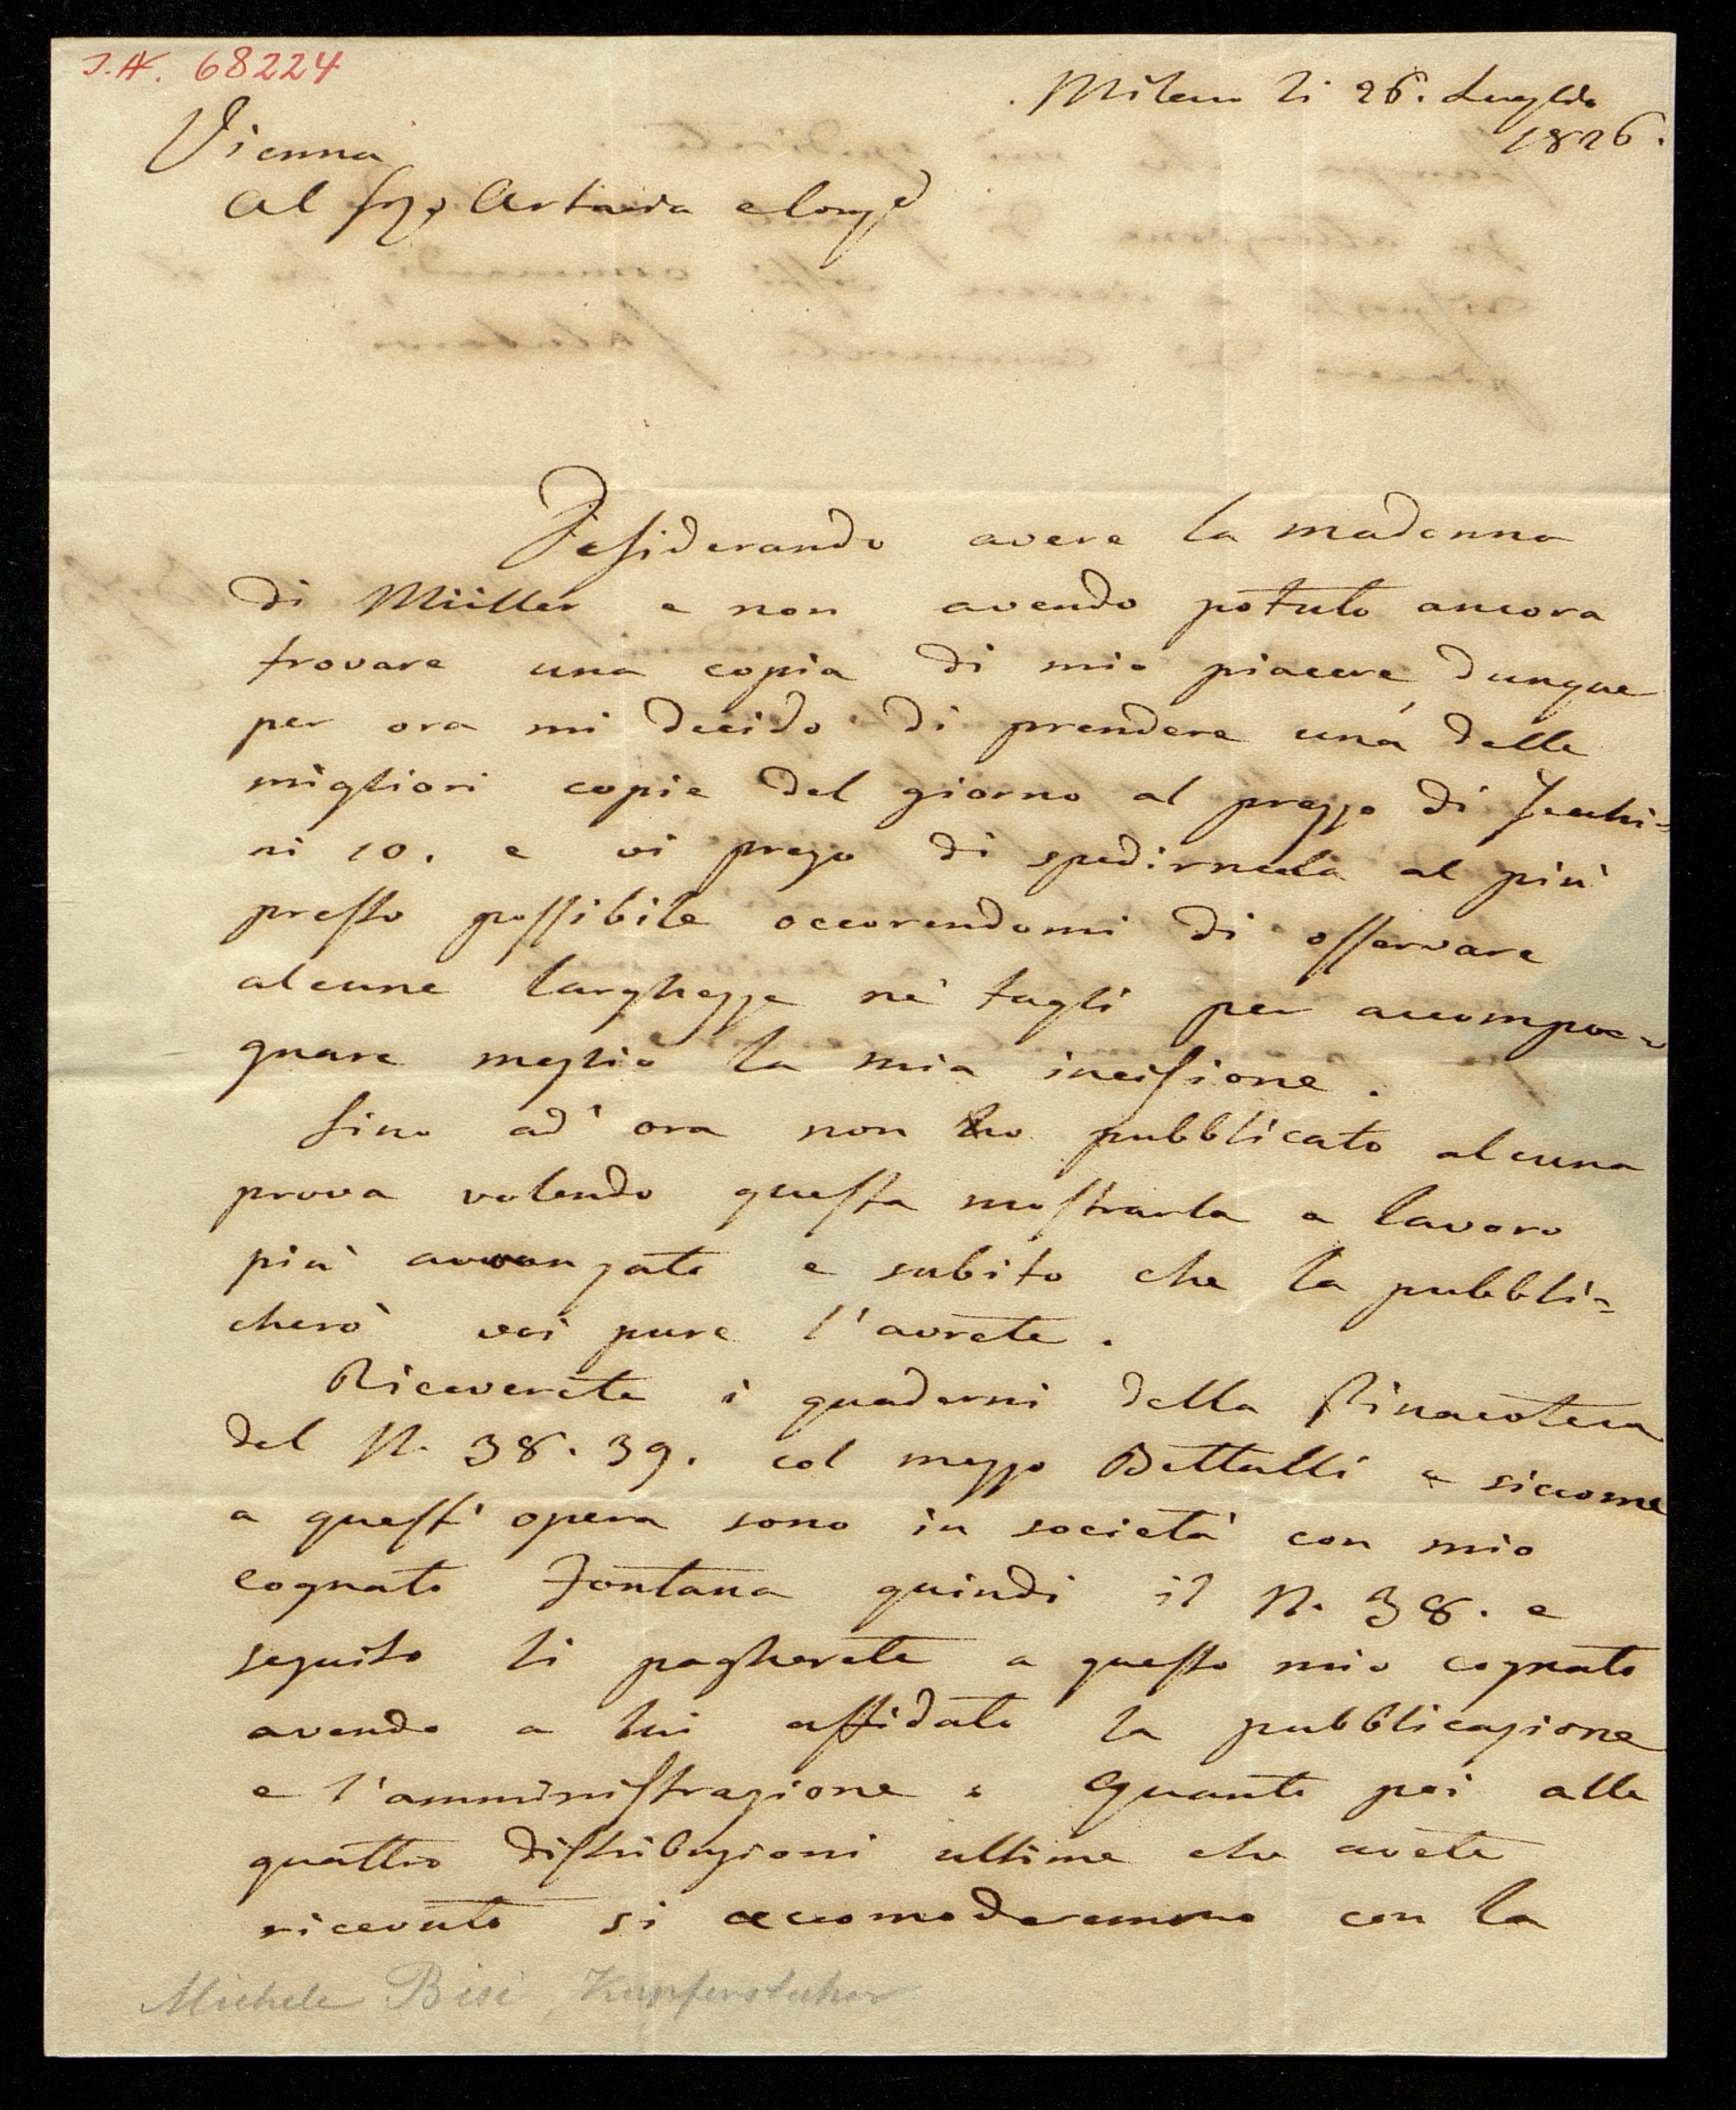 J.N. 68224
Milano li 26. Luglio
1826.
Vienna
Al Sigr Artaria e Compd
Desiderando avere la madonna
di Müller e non avendo potuto ancora
trovare una copia di mio piacere dunque
per ora mi decido di prendere una delle
migliori copie del giorno al prezzo di Zechi=
ni 10. e vi prego di spedirmela al più
presto possibile occorendomi di osservare
alcune larghezze ne' tagli per accompa=
gnare meglio la mia incisione.
Sino ad' ora non ho pubblicato alcuna
prova volendo questa mostrarla a lavoro
più avvanzato e subito che la pubbli=
cherò voi pure l'avrete.
Riceverete i quaderni della Pinacoteca
del N. 38. 39. col mezzo Bettalli e siccome
a quest' opera sono in società con mio
cognato Fontana quindi il N. 38. e
seguito li pagherete a questo mio cognato
avendo a lui affidato la pubblicazione
e l'amministrazione. Quanto poi alle
quattro distribuzioni ultime che avete
ricevuto si accomoderemmo con la
Michele Bisi, Kupferstecher